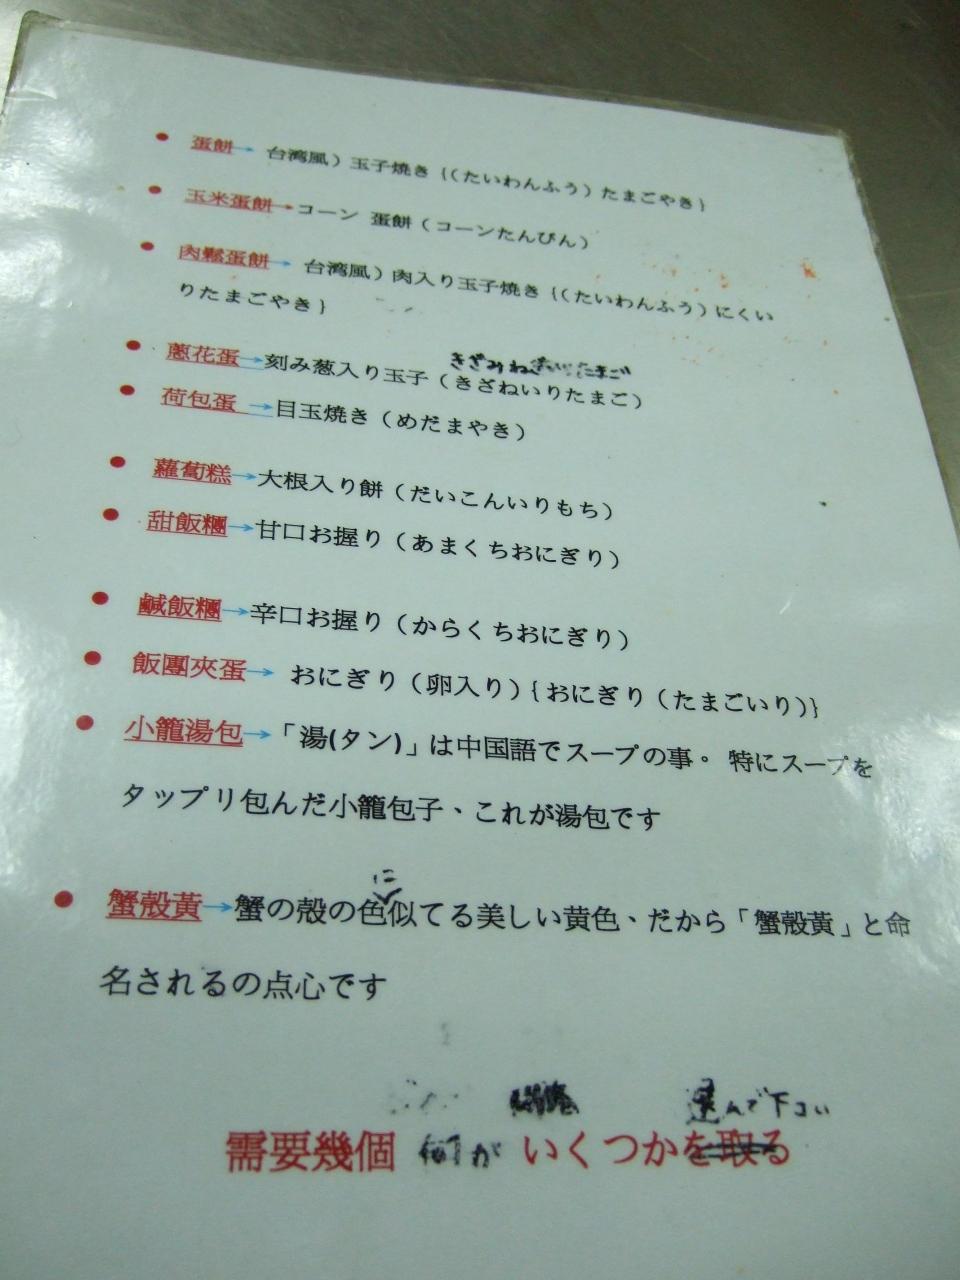 ● 蛋餅→ 台湾風）玉子焼き {（たいわんふう）たまごやき}
● 玉米蛋餅→コーン 蛋餅（コーンたんぴん）
● 肉鬆蛋餅→ 台湾風）肉入り玉子焼き {（たいわんふう）にくい
りたまごやき}
きざみねぎいりたまご
● 蔥花蛋→刻み葱入り玉子（きざねいりたまご）
● 荷包蛋→目玉焼き（めだまやき）
● 蘿蔔糕→大根入り餅（だいこんいりもち）
● 甜飯糰→甘口お握り（あまくちおにぎり）
● 鹹飯糰→辛口お握り（からくちおにぎり）
● 飯團夾蛋→ おにぎり（卵入り）{ おにぎり（たまごいり）}
● 小籠湯包→「湯(タン)」は中国語でスープの事。 特にスープを
タップリ包んだ小籠包子、これが湯包です
に
● 蟹殼黃→蟹の殻の色似てる美しい黄色、だから「蟹殼黃」と命
名されるの点心です
選んで下さい
需要幾個 何が いくつかを取る